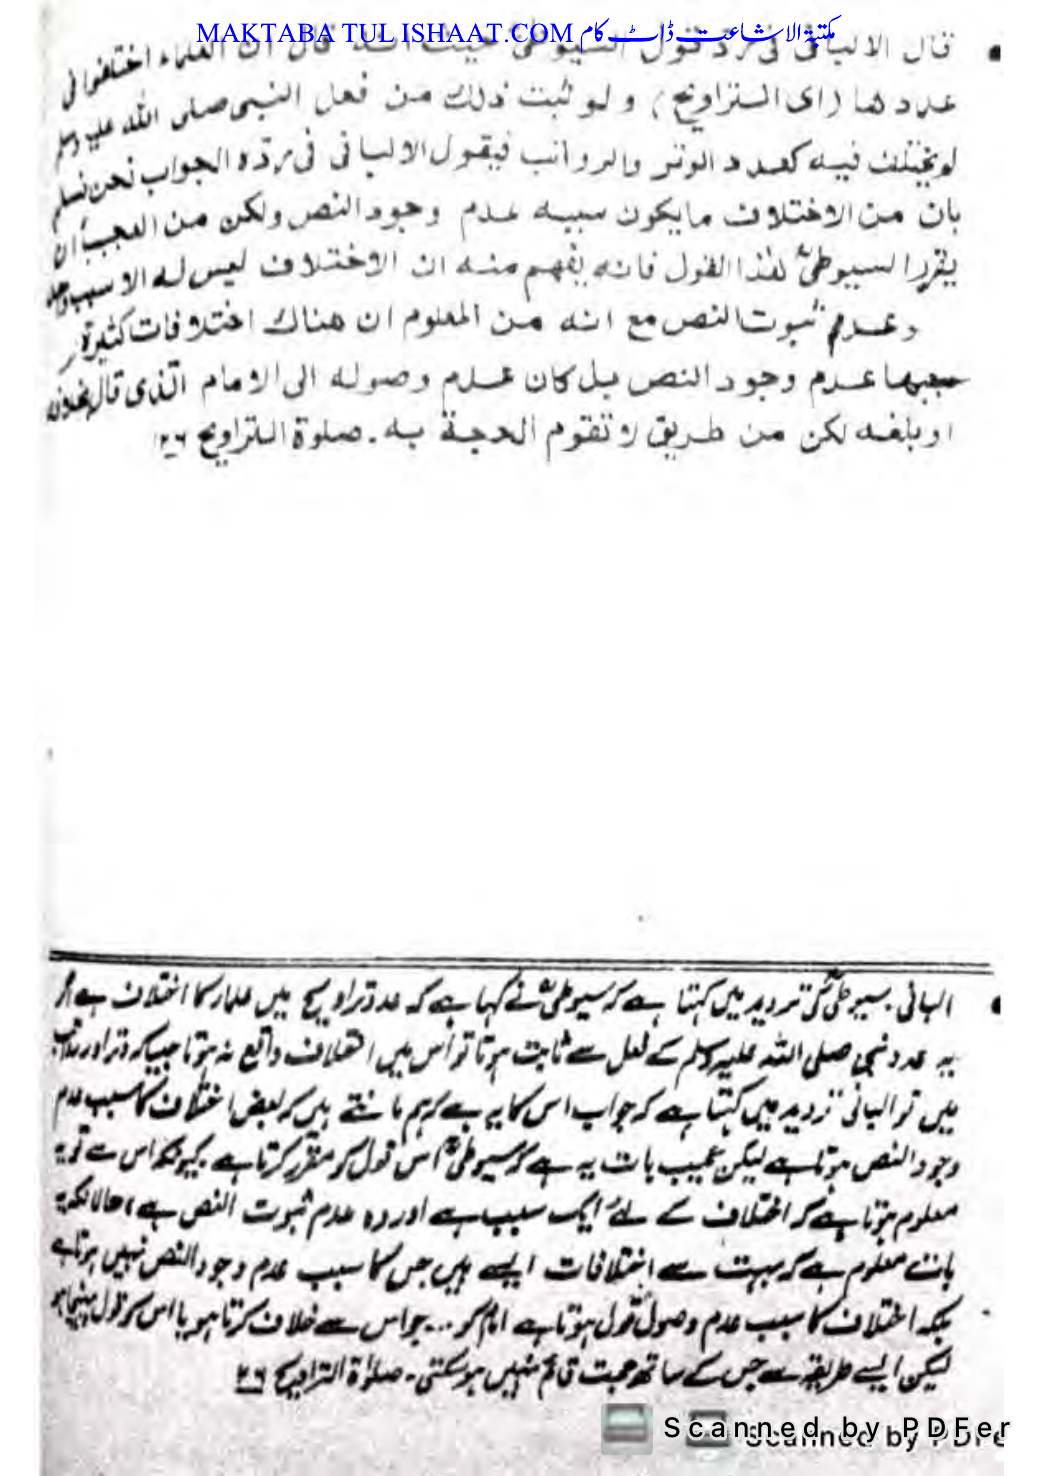 MAKTABA TUL ISHAAT.COM مکتبۃ الاشاعت ڈاٹ کام
قال الالبانی فی رد قول السیوطی حیث انہ قال ان العلماء اختلفوا فی
عددها (ای التراویح) ولو ثبت ذلك من فعل النبی صلی الله علیہ وسلم
لم یختلف فیہ کعدد الوتر والرواتب فیقول الالبانی فی ردہ الجواب نحن نسلم
بان من الاختلاف مایکون سببہ عدم وجود النص ولکن من العجب ان
یقرر السیوطیؒ لهذا القول فانه یفهم منه ان الاختلاف لیس له الا سبب واحد
وعدم ثبوت النص مع انه من المعلوم ان هناك اختلافات کثیرة
سببها عدم وجود النص بل کان عدم وصوله الی الامام الذی قال بخلافه
او بلغه لکن من طریق لا تقوم الحجة به۔ صلوة التراویح ٢٦
البانی سیوطیؒ کی تردید میں کہتا ہے کہ سیوطیؒ نے کہا ہے کہ عدد تراویح میں علماء کا اختلاف ہے اگر
یہ عدد نبی صلی اللہ علیہ وسلم کے فعل سے ثابت ہوتا تو اس میں اختلاف واقع نہ ہوتا جیسا کہ وتر اور رواتب
میں تو البانی تردید میں کہتا ہے کہ جواب اس کا یہ ہے کہ ہم مانتے ہیں کہ بعض اختلاف کا سبب عدم
وجود النص ہوتا ہے لیکن عجیب بات یہ ہے کہ سیوطیؒ اس قول کو مقرر کرتا ہے کیونکہ اس سے تو یہ
معلوم ہوتا ہے کہ اختلاف کے لئے ایک سبب ہے اور وہ عدم ثبوت النص ہے، حالانکہ یہ
بات معلوم ہے کہ بہت سے اختلافات ایسے ہیں جس کا سبب عدم وجود النص نہیں ہوتا ہے
بلکہ اختلاف کا سبب عدم وصول قول ہوتا ہے امام کو... جو اس سے خلاف کرتا ہو یا اس کو قول پہنچا ہو
لیکن ایسے طریقہ سے جس کے ساتھ حجت قائم نہیں ہو سکتی۔ صلوٰۃ التراویح ٢٦
Scanned by PDFer
Scanned by PDFe